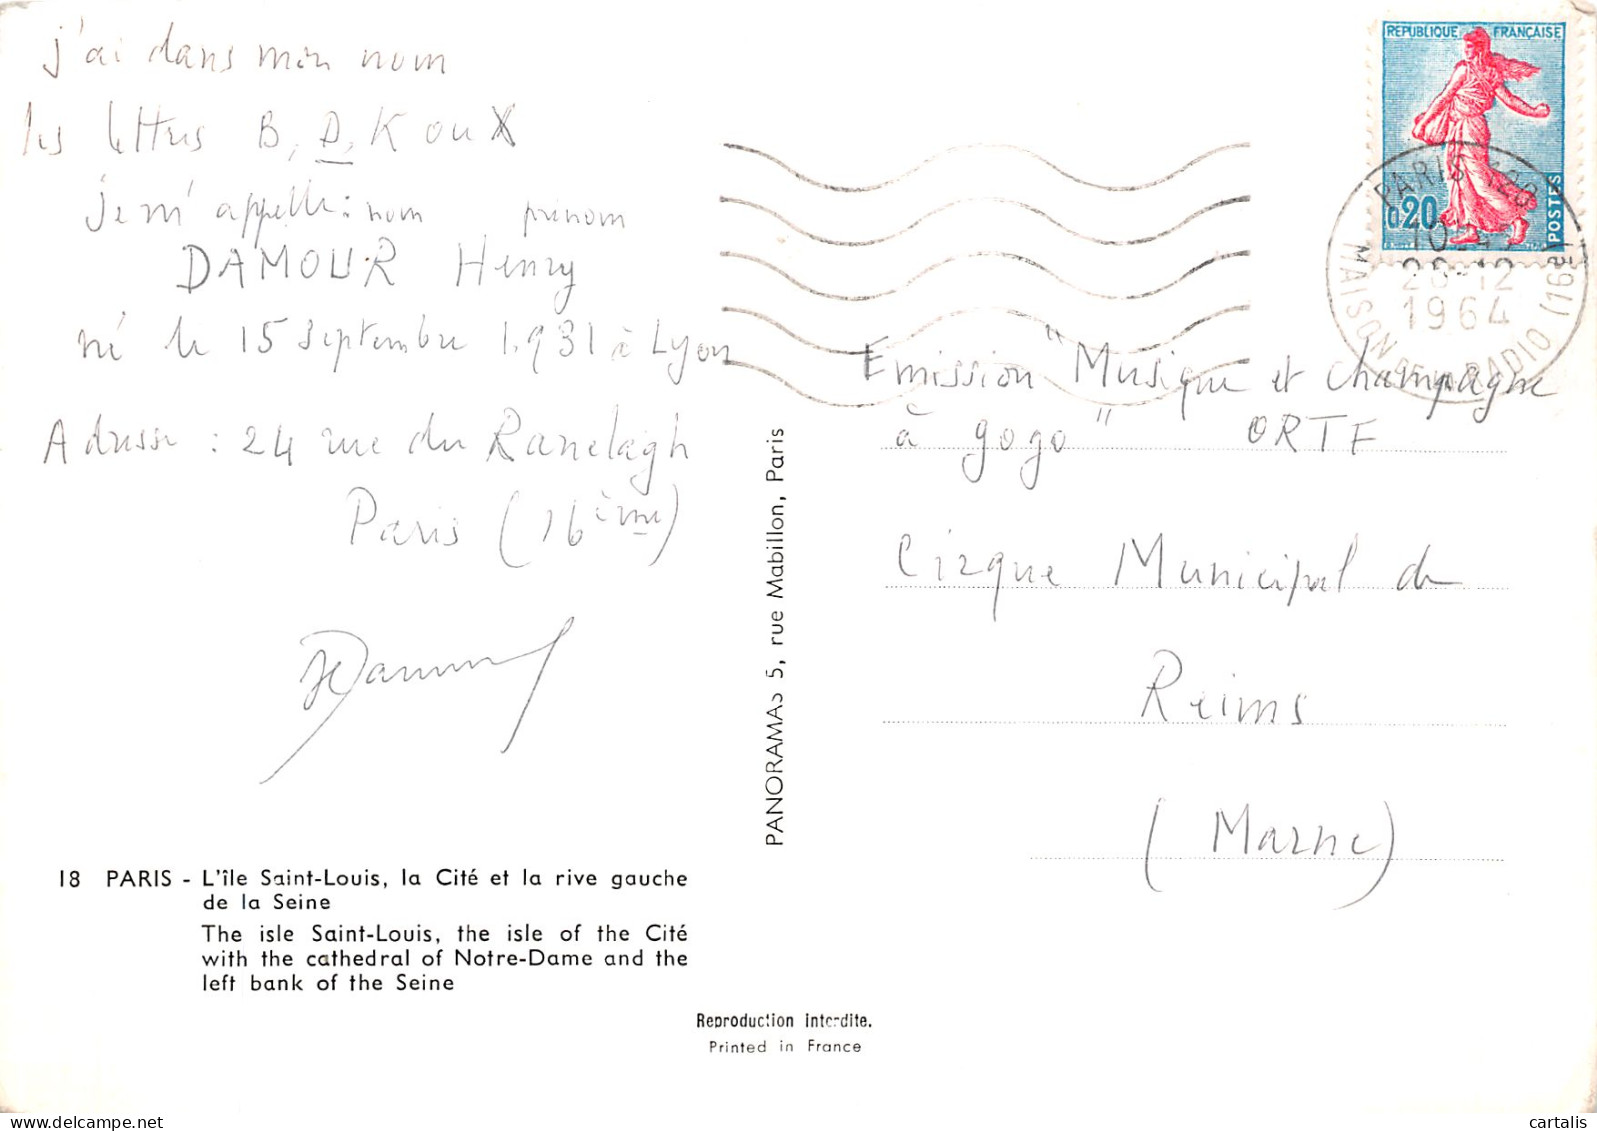 j'ai dans mon nom
les lettres B, D, K ou X
je m'appelle : nom prénom
DAMOUR Henry
né le 15 septembre 1931 à Lyon
Adresse : 24 rue du Ranelagh
Paris (16ème)
HDamour
18 PARIS - L'île Saint-Louis, la Cité et la rive gauche
de la Seine
The isle Saint-Louis, the isle of the Cité
with the cathedral of Notre-Dame and the
left bank of the Seine
PANORAMAS 5, rue Mabillon, Paris
Reproduction interdite.
Printed in France
REPUBLIQUE FRANÇAISE
0,20
POSTES
PARIS
1964
MAISON DE LA RADIO (16e)
Emission "Musique et Champagne
à gogo" ORTF
Cirque Municipal de
Reims
(Marne)
cartalis